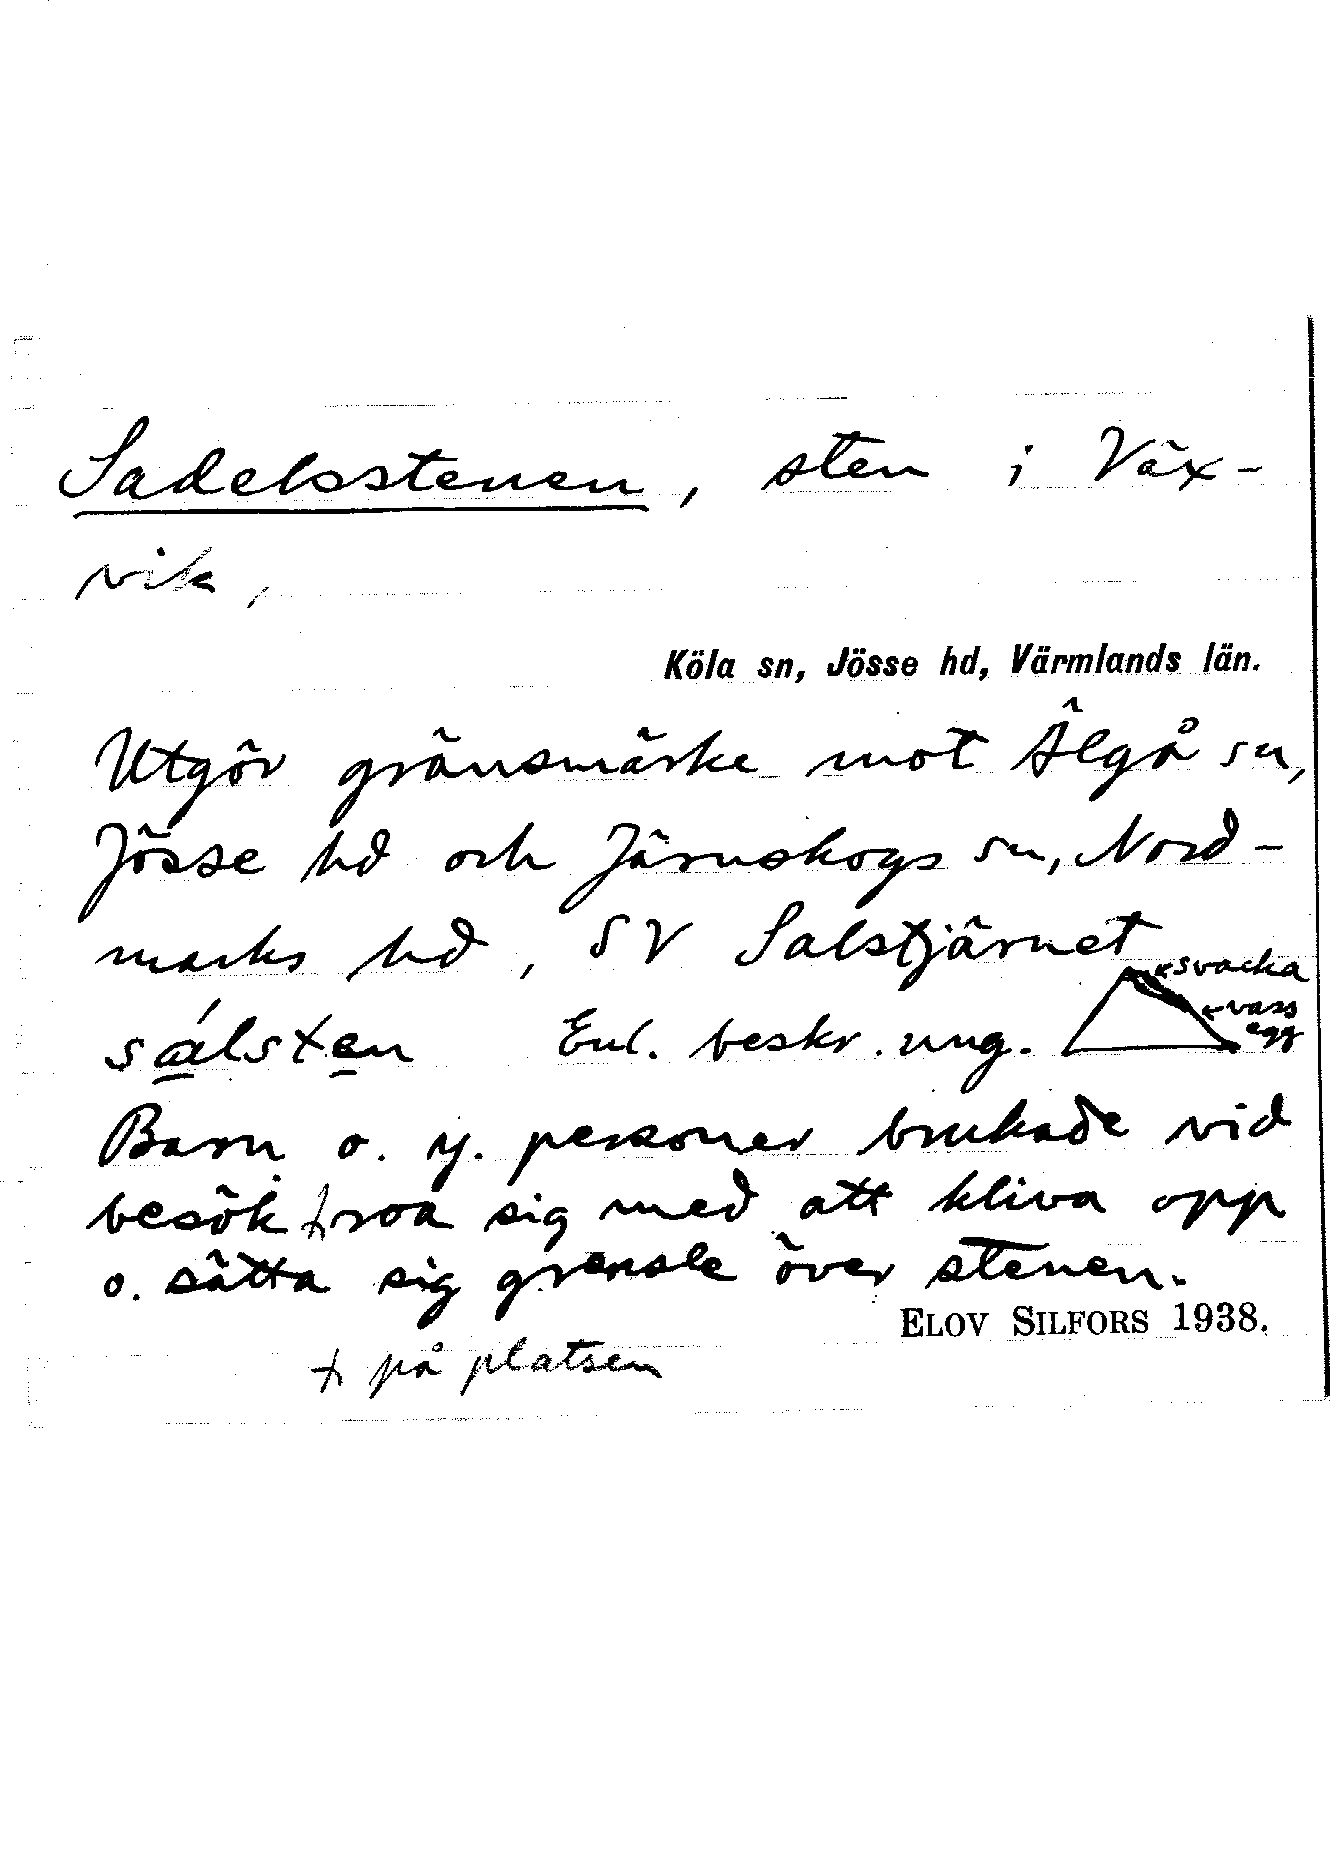 Sadelsstenen, sten i Väx-
vik,
Köla sn, Jösse hd, Värmlands län.
Utgör gränsmärke mot Älgå sn,
Jösse hd och Järnskogs sn, Nord-
marks hd, SV Salstjärnet
←svacka
←vass
egg
sálsten Enl. beskr. ung.
Barn o. y. personer brukade vid
besök ᚋroa sig med att kliva opp
o. sätta sig grensle över stenen.
ELOV SILFORS 1938.
ᚋ på platsen